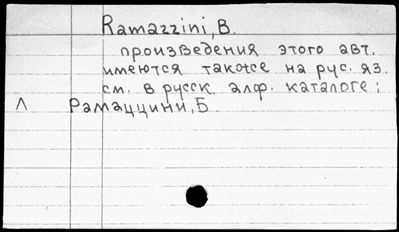 Ramazzini, B.
произведения этого авт.
имеются также на рус. яз.
см. в русск. алф. каталоге:
Л Рамаццини, Б.